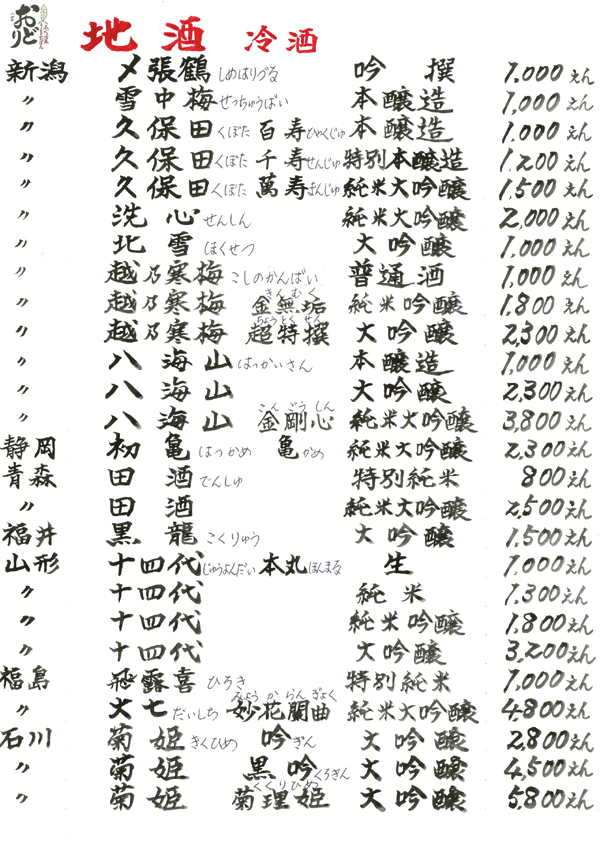 おどり 地酒 冷酒
新潟 〆張鶴 しめはりづる 吟撰 1,000えん
〃 雪中梅 せっちゅうばい 本醸造 1,000えん
〃 久保田 くぼた 百寿 ひゃくじゅ 本醸造 1,000えん
〃 久保田 くぼた 千寿 せんじゅ 特別本醸造 1,200えん
〃 久保田 くぼた 萬寿 まんじゅ 純米大吟醸 1,500えん
〃 洗心 せんしん 純米大吟醸 2,000えん
〃 北雪 ほくせつ 大吟醸 1,000えん
〃 越乃寒梅 こしのかんばい 普通酒 1,000えん
〃 越乃寒梅 金無垢 きんむく 純米吟醸 1,800えん
〃 越乃寒梅 超特撰 ちょうとくせん 大吟醸 2,300えん
〃 八海山 はっかいさん 本醸造 1,000えん
〃 八海山 大吟醸 2,300えん
〃 八海山 金剛心 こんごうしん 純米大吟醸 3,800えん
静岡 初亀 はつかめ 亀 かめ 純米大吟醸 2,300えん
青森 田酒 でんしゅ 特別純米 800えん
〃 田酒 純米大吟醸 2,500えん
福井 黒龍 こくりゅう 大吟醸 1,500えん
山形 十四代 じゅうよんだい 本丸 ほんまる 生 1,000えん
〃 十四代 純米 1,300えん
〃 十四代 純米吟醸 1,800えん
〃 十四代 大吟醸 3,200えん
福島 飛露喜 ひろき 特別純米 1,000えん
〃 大七 だいしち 妙花闌曲 みょうからんぎょく 純米大吟醸 4,800えん
石川 菊姫 きくひめ 吟 ぎん 大吟醸 2,800えん
〃 菊姫 黒吟 くろぎん 大吟醸 4,500えん
〃 菊姫 菊理姫 くくりひめ 大吟醸 5,800えん